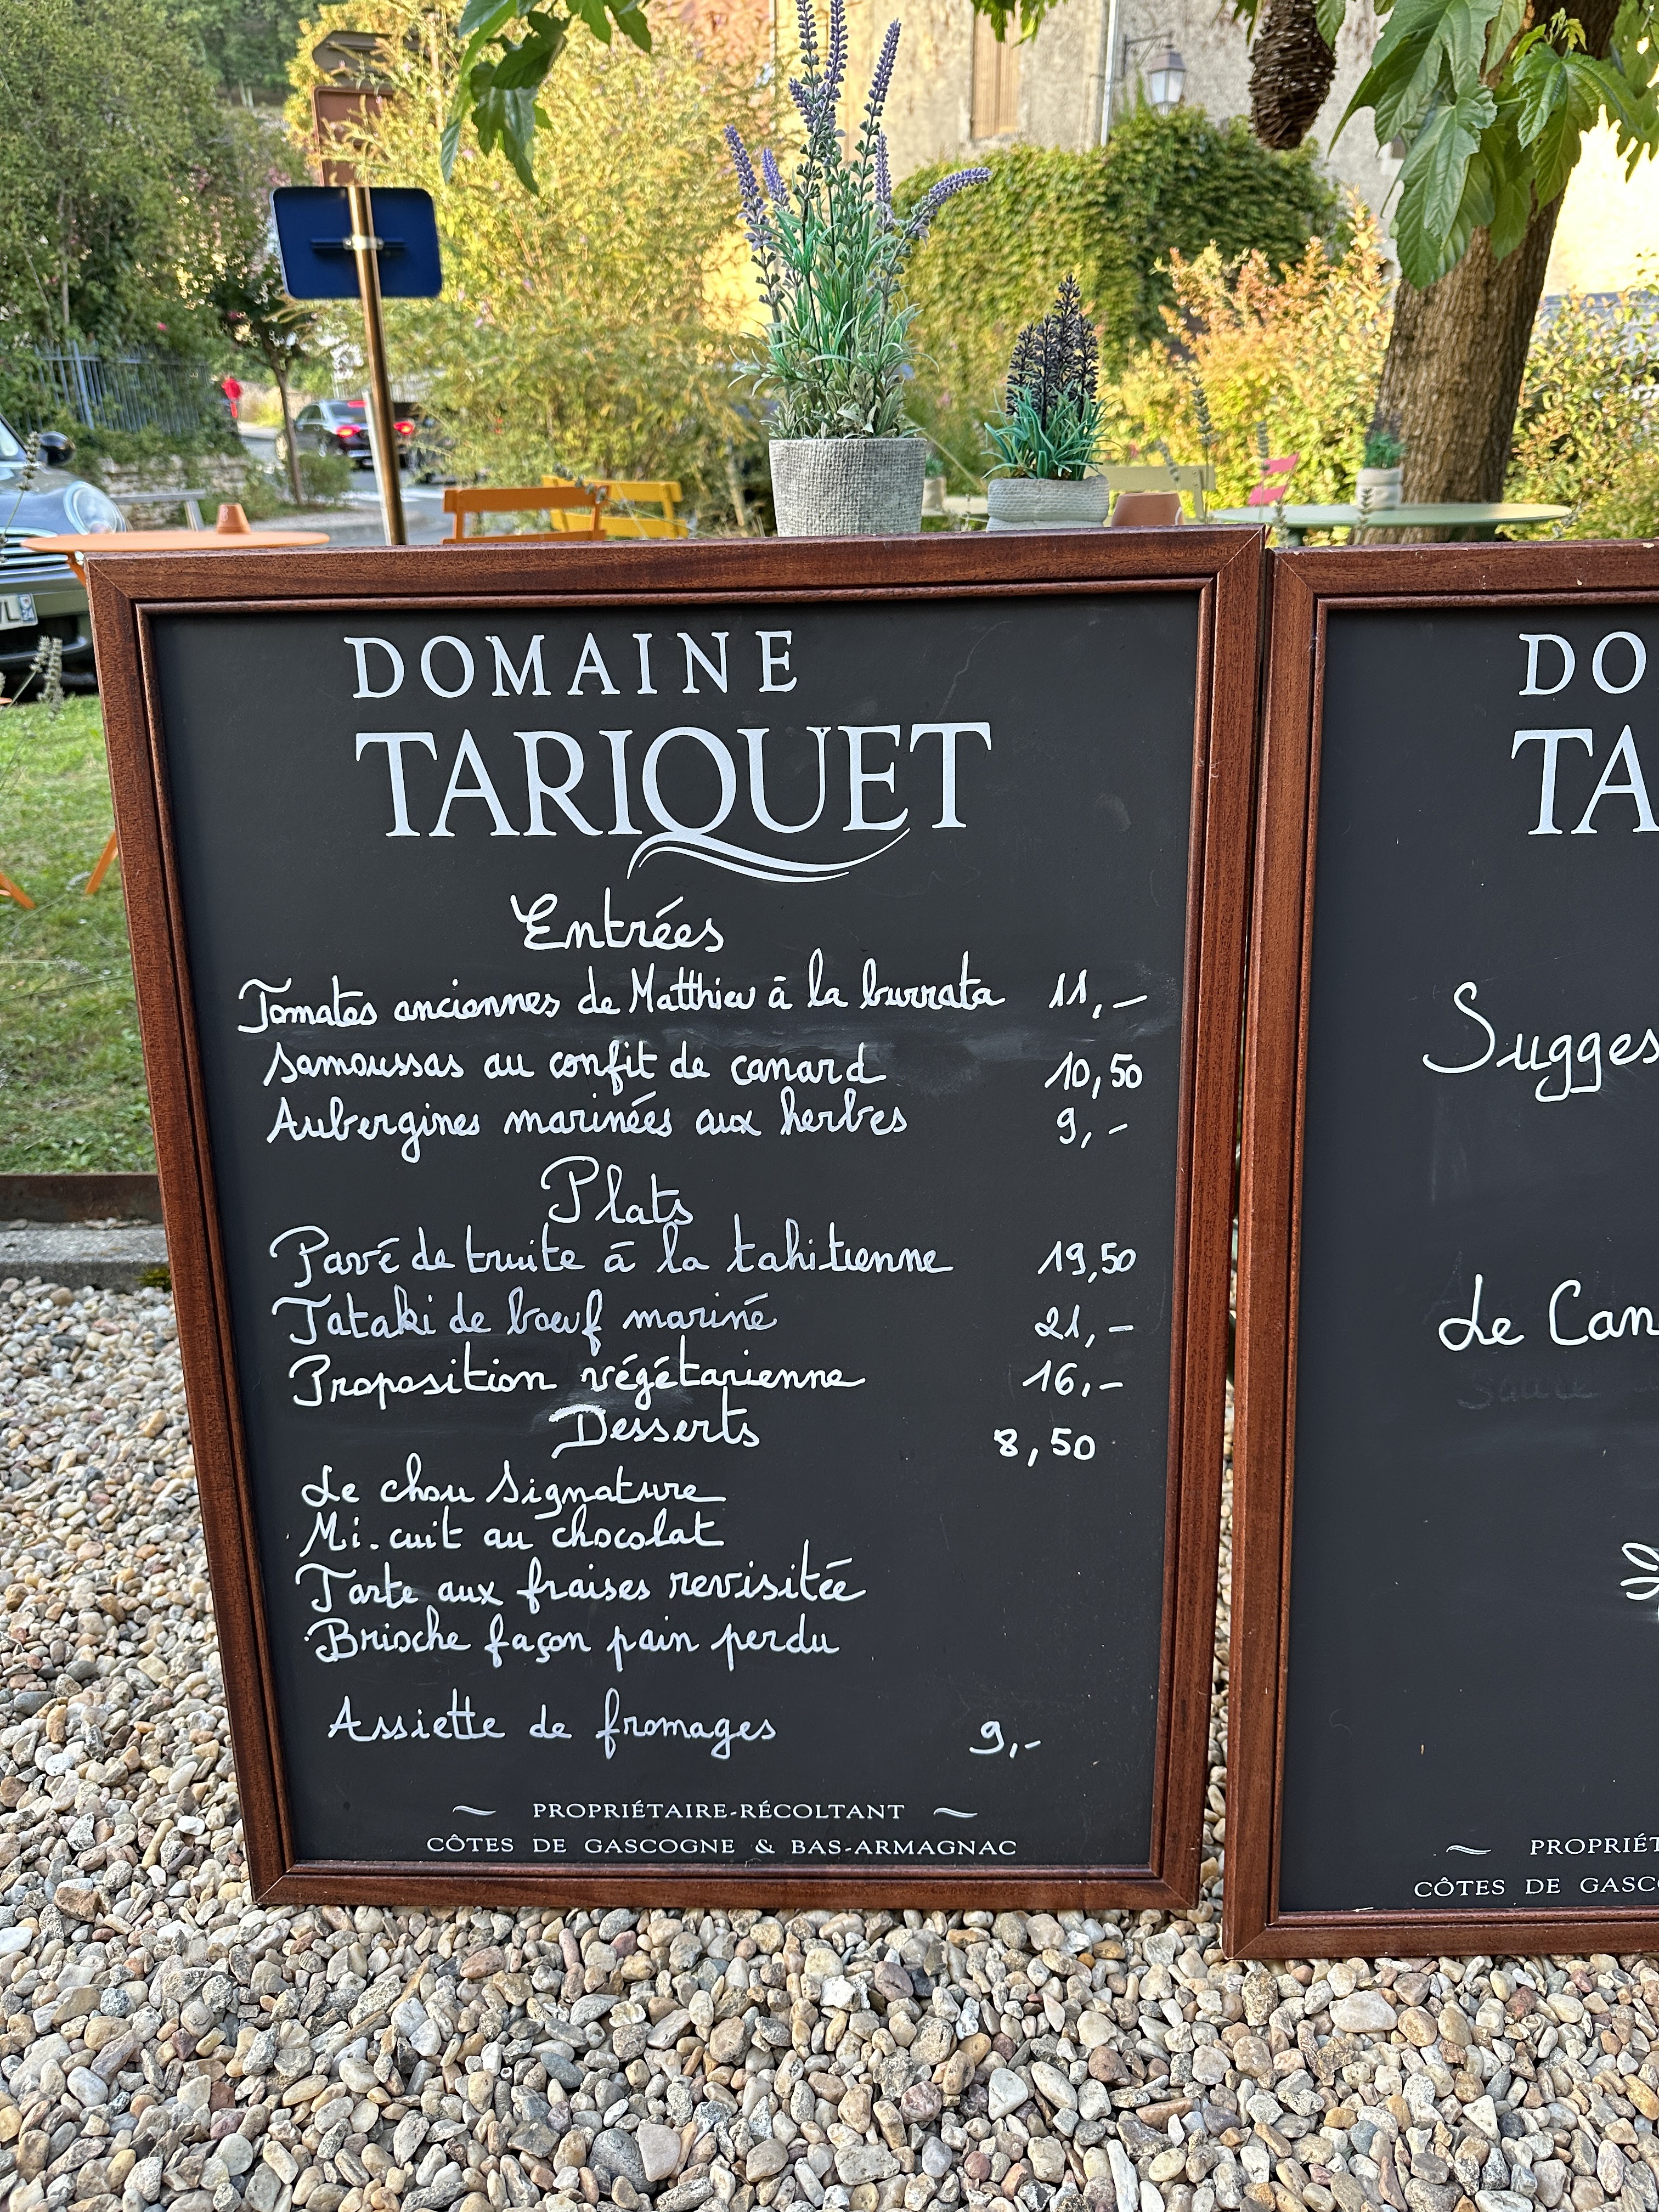 DOMAINE
TARIQUET
Entrées
Tomates anciennes de Matthieu à la burrata 11,–
Samoussas au confit de canard 10,50
Aubergines marinées aux herbes 9,–
Plats
Pavé de truite à la tahitienne 19,50
Tataki de bœuf mariné 21,–
Proposition végétarienne 16,–
Desserts 8,50
Le chou Signature
Mi-cuit au chocolat
Tarte aux fraises revisitée
Brioche façon pain perdu
Assiette de fromages 9,–
PROPRIÉTAIRE-RÉCOLTANT
CÔTES DE GASCOGNE & BAS-ARMAGNAC
DO
TA
Sugges
Le Can
PROPRIÉT
CÔTES DE GASCO